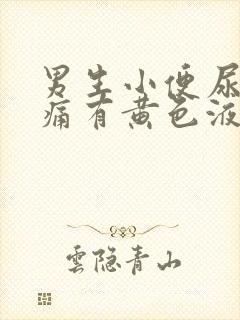 男生小便尿
痛有黄色液
雲隐青山